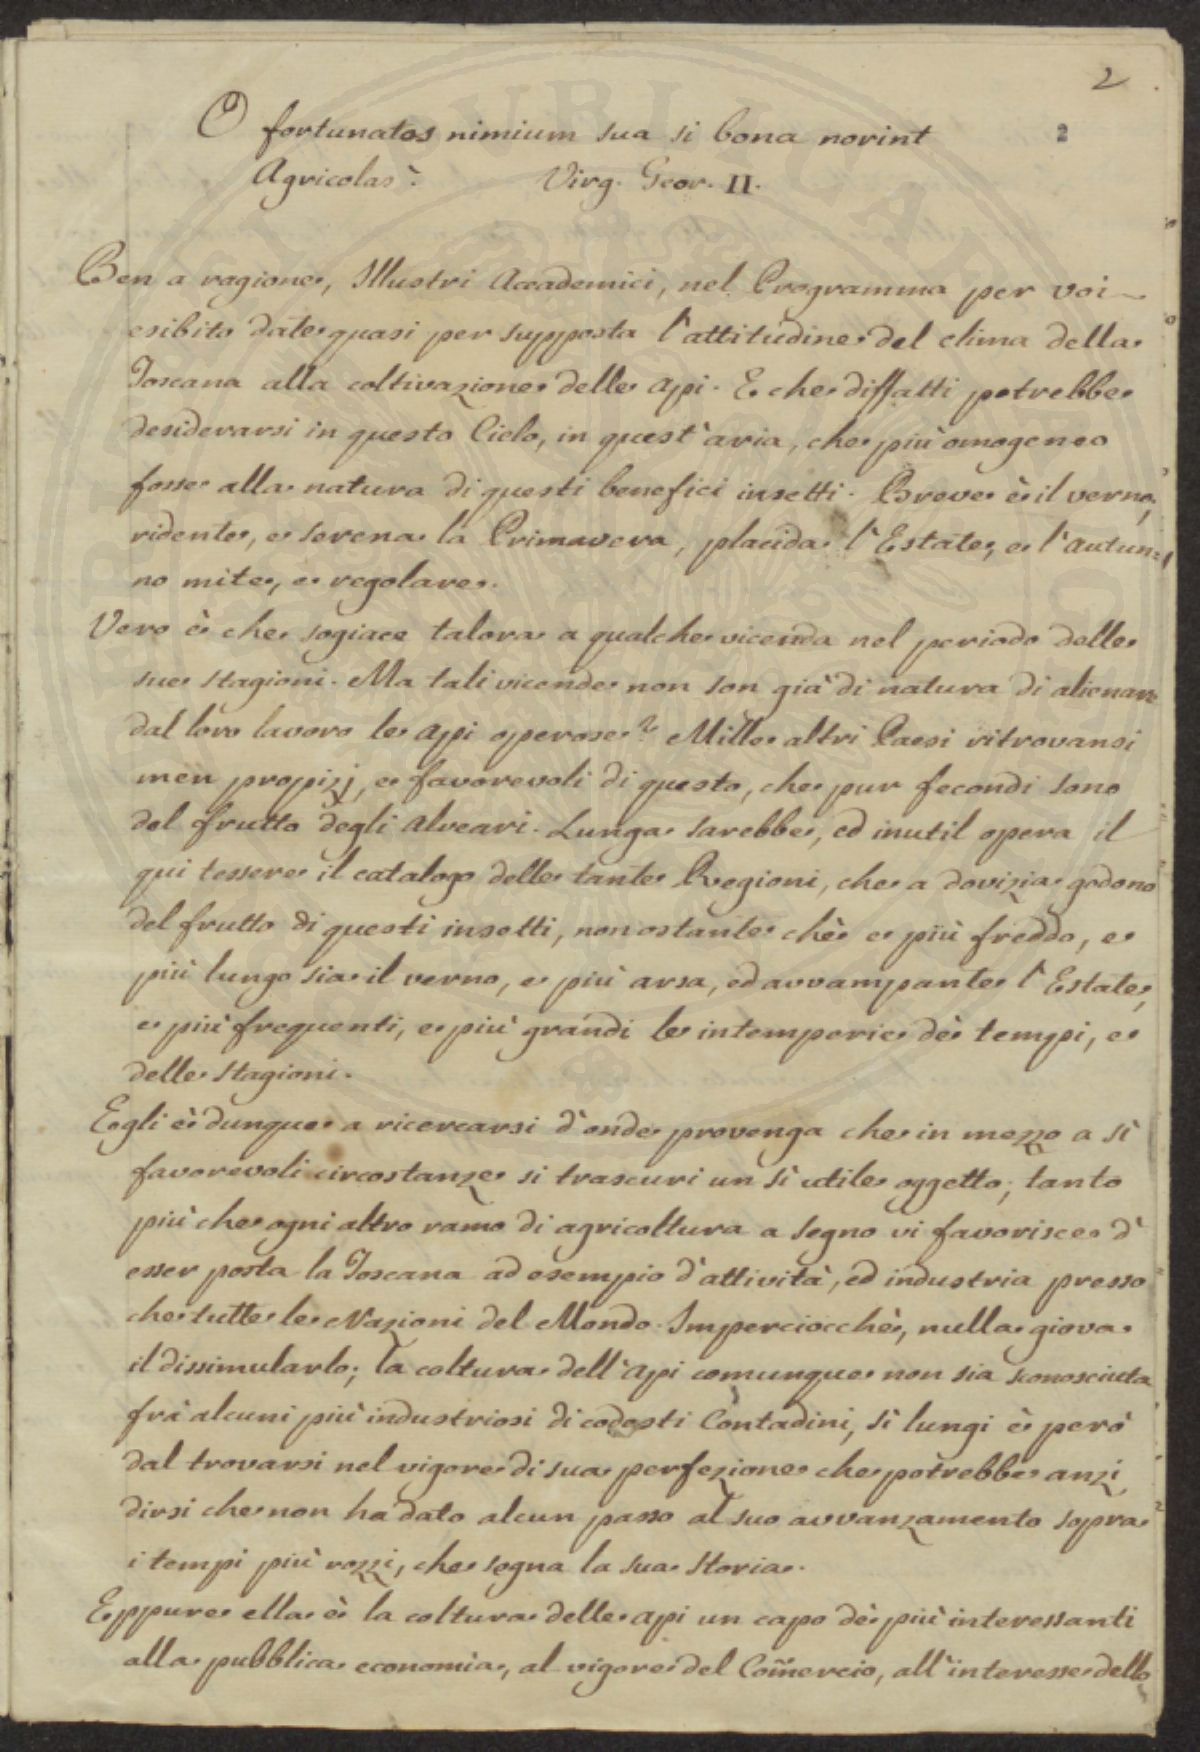 2
O fortunatos nimium sua si bona norint
2
Agricolas! Virg. Geor. II.
Ben a ragione, Illustri Accademici, nel Programma per voi
esibito date quasi per supposta l'attitudine del clima della
Toscana alla coltivazione delle Api. E che diffatti potrebbe
desiderarsi in questo Cielo, in quest'aria, che più omogeneo
fosse alla natura di questi benefici insetti. Breve è il verno,
ridente, e serena la Primavera, placida l'Estate, e l'Autun=
no mite, e regolare.
Vero è che sogiace talora a qualche vicenda nel periodo delle
sue stagioni. Ma tali vicende non son già di natura di alienare
dal loro lavoro le Api operose? Mille altri Paesi ritrovansi
men propizj, e favorevoli di questo, che pur fecondi sono
del frutto degli Alveari. Lunga sarebbe, ed inutil opera il
qui tessere il catalogo delle tante Regioni, che a dovizia godono
del frutto di questi insetti, non ostante chè e più freddo, e
più lungo sia il verno, e più arsa, ed avvampante l'Estate,
e più frequenti, e più grandi le intemperie dè tempi, e
delle stagioni.
Egli è dunque a ricercarsi d'onde provenga che in mezzo a sì
favorevoli circostanze si trascuri un sì utile oggetto; tanto
più che ogni altro ramo di agricoltura a segno vi favorisce d'
esser posta la Toscana ad esempio d'attività, ed industria presso
che tutte le Nazioni del Mondo. Imperciocchè, nulla giova
il dissimularlo; la coltura dell'Api comunque non sia sconosciuta
frà alcuni più industriosi di codesti Contadini, sì lungi è però
dal trovarsi nel vigore di sua perfezione che potrebbe anzi
dirsi che non ha dato alcun passo al suo avvanzamento sopra
i tempi più rozzi, che segna la sua storia.
Eppure ella è la coltura delle Api un capo dè più interessanti
alla pubblica economia, al vigore del Com̃ercio, all'interesse dello